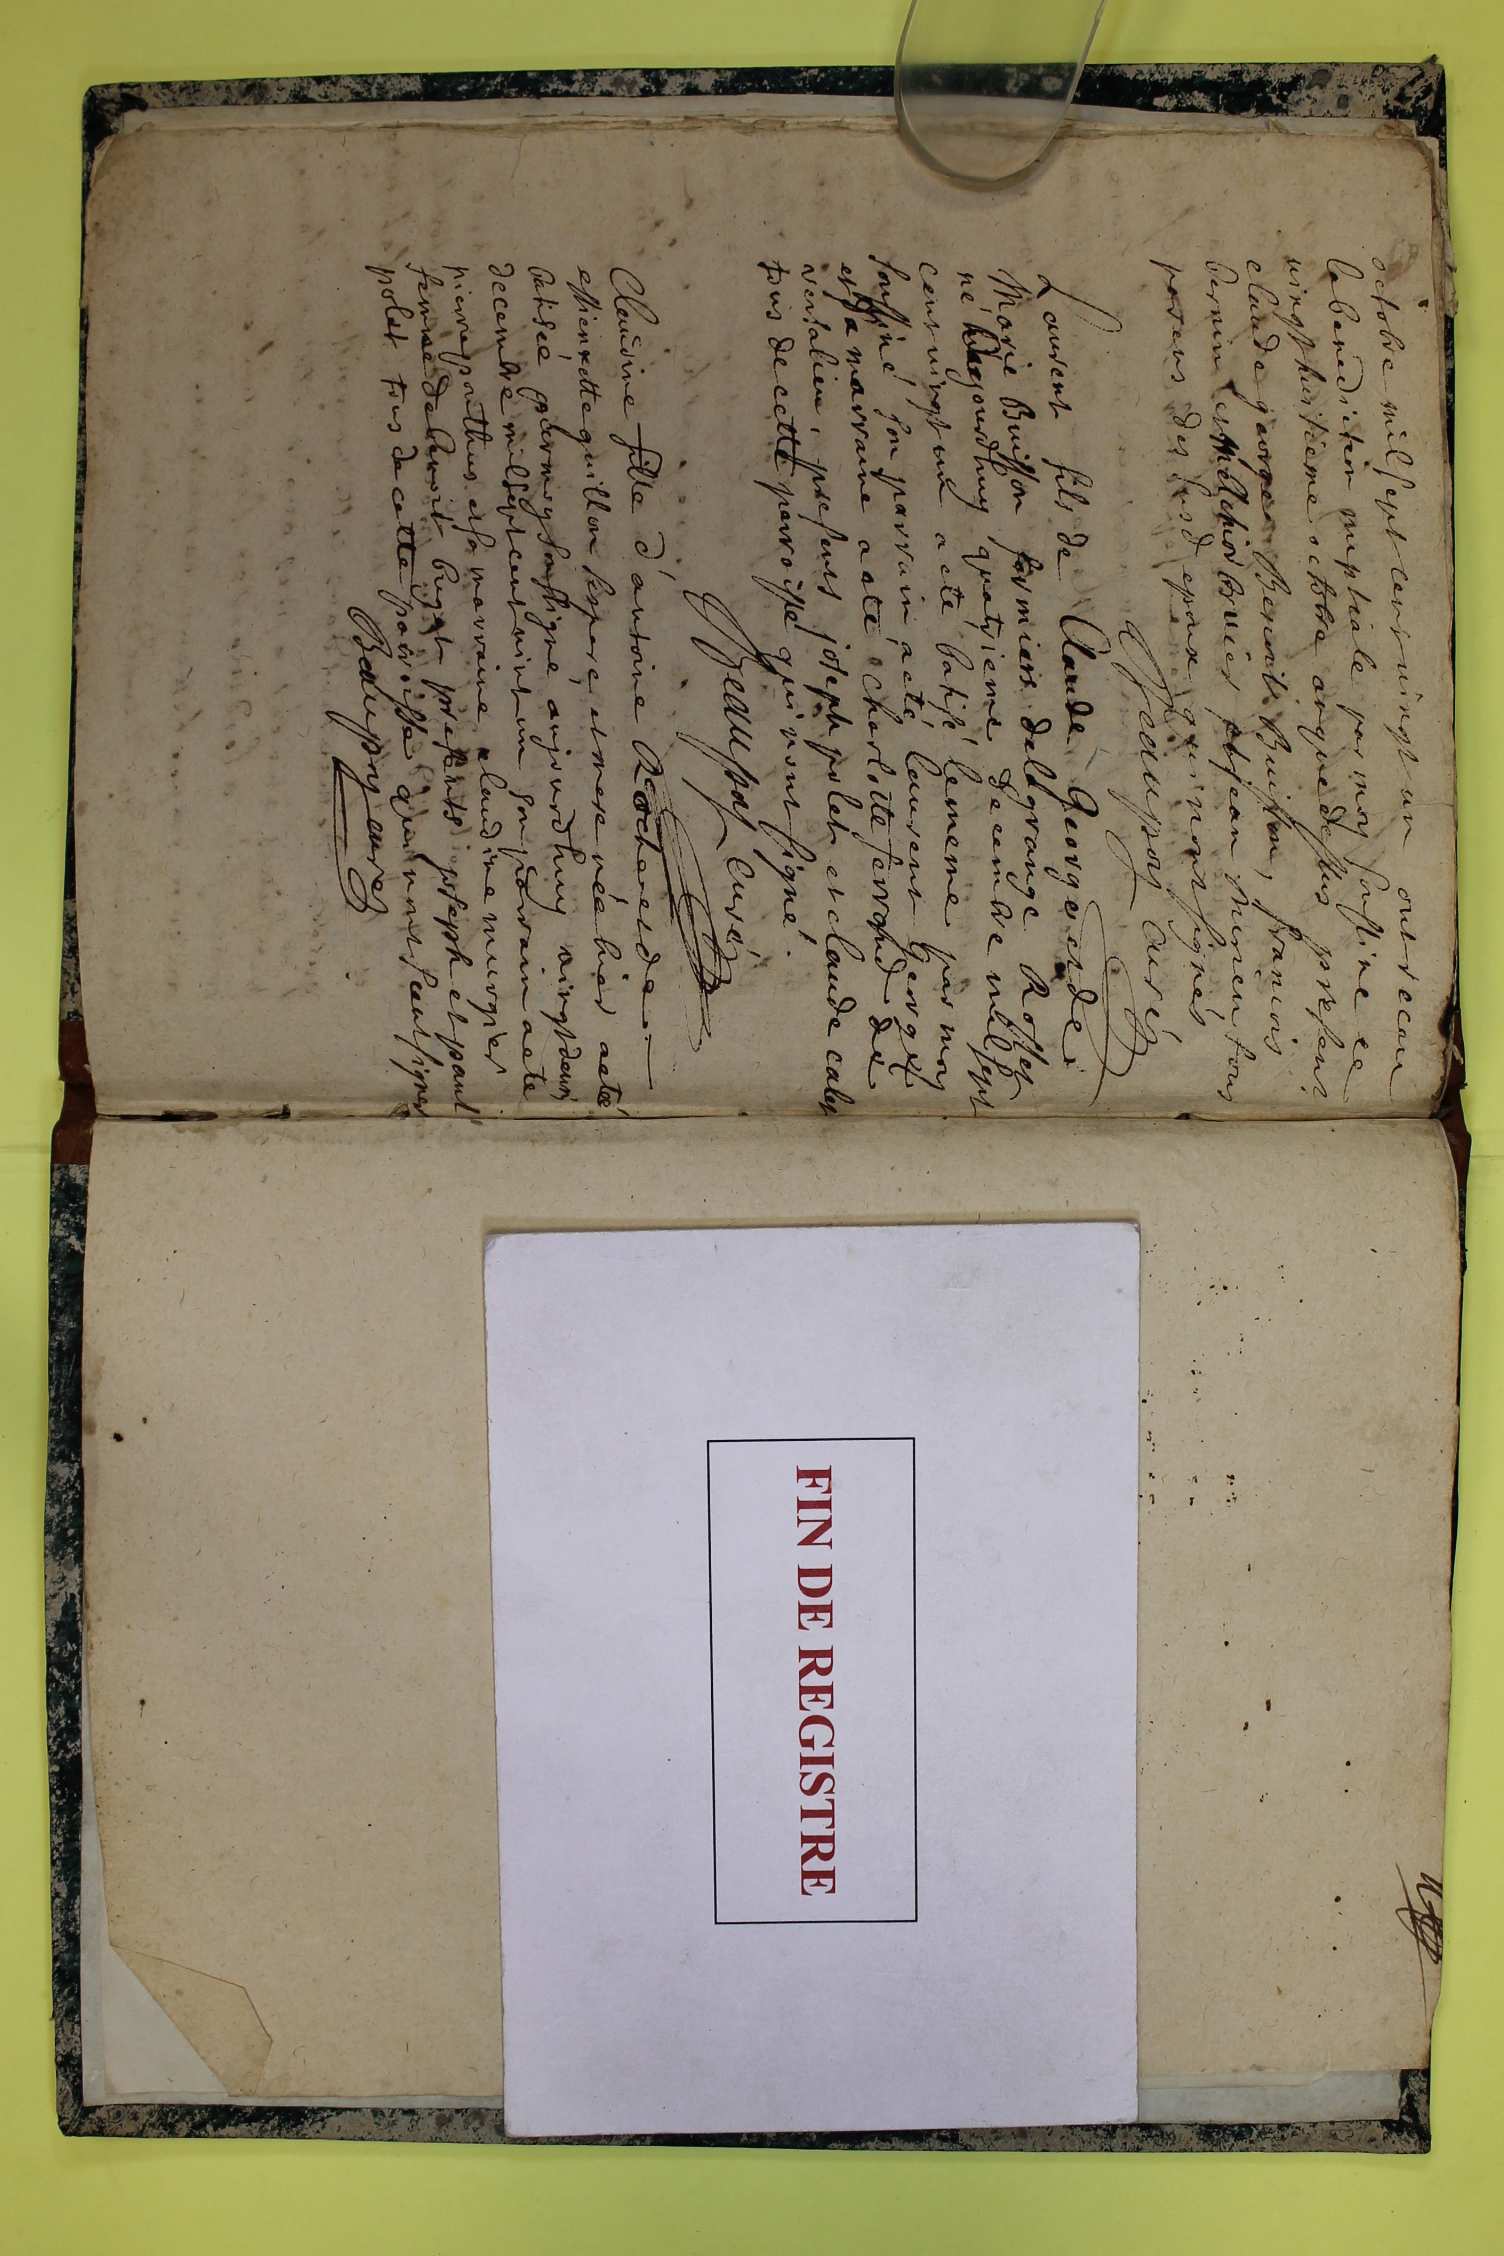 octobre mil sept cent vingt un ont receu
la benediction nuptiale par moy soussine ce
vingt huitieme octobre avque dessus present
claude george Benoit Buisson, francois
bernin et Melchior bruier et jean mirien tous
parens des susd epoux qui n'ont signés
Beaupoy curé
Laurent fils de Claude George et de
Marie Buisson fermiers de la grange Rosset
né hauourdhuy quatrieme decembre mil sept
cent vingt un a eté batisé le meme par moy
soussiné son parrain a eté laurent George
et sa marraine a eté charlotte ferrand de
versalieu, presents joseph polet et claude calet
tous de cette parroisse qui n'ont signé.
Beaupoy curé
Claudine fille d'antoine Rochanet de
estiennette guillon sespere, et mere née hier a eté
batisée par moy soussigne aujourdhuy vingt deux
decembre mil sept cent vint un son parrain a ete
pierre ponthus et sa marraine claudine murgier
femme de benoit buget presents joseph et
polet tous de cette paroisse qui n'ont sceut signer
Beaupoy curé
FIN DE REGISTRE